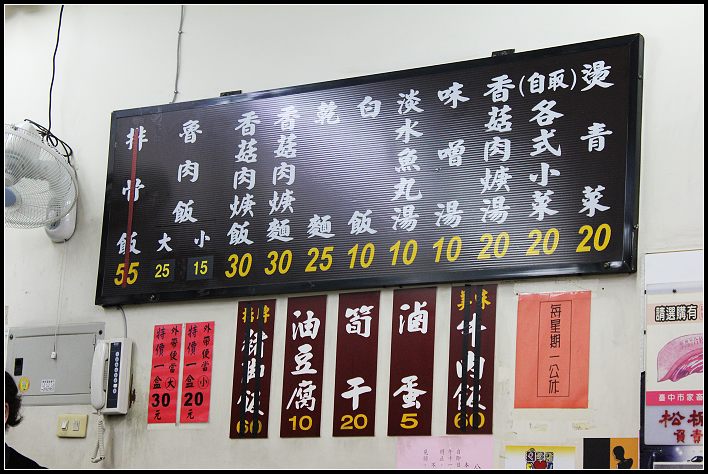 燙青菜 20
(自取)各式小菜 20
香菇肉焿湯 20
味噌湯 10
淡水魚丸湯 10
白飯 10
乾麵 25
香菇肉焿麵 30
香菇肉焿飯 30
魯肉飯
小 15
大 25
排骨飯 55
美味
牛肉飯 60
滷蛋 5
筍干 20
油豆腐 10
60
外帶便當(小)
特價一盒20元
外帶便當(大)
特價一盒30元
每星期一公休
請選購有
臺中市家畜
松板